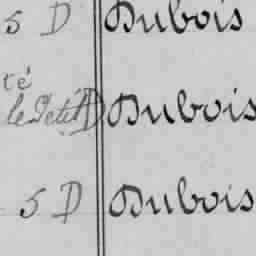 5 D Dubois
té
le Petit D Dubois
5 D Dubois